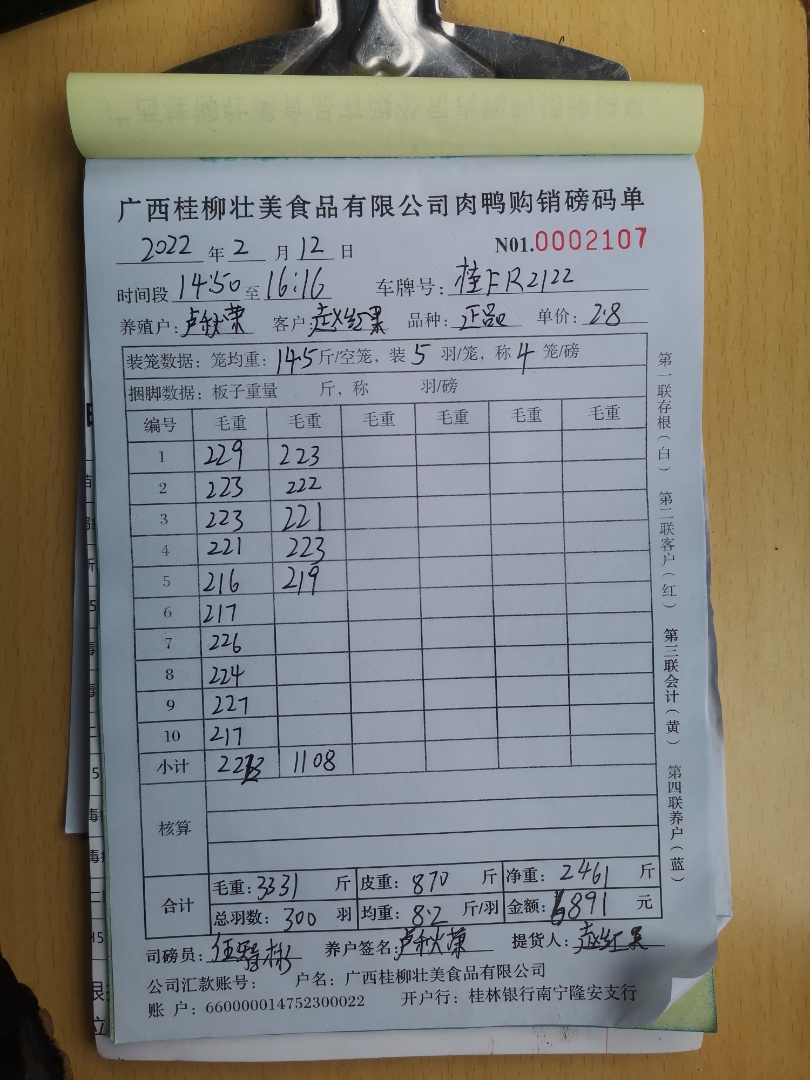 广西桂柳壮美食品有限公司肉鸭购销磅码单
2022 年 2 月 12 日 N01.0002107
时间段 14:50 至 16:16 车牌号: 桂FR2122
养殖户: 卢秋荣 客户: 赵红果 品种: 正品 单价: 2.8
装笼数据: 笼均重: 14.5 斤/空笼, 装 5 羽/笼, 称 4 笼/磅
捆脚数据: 板子重量 斤, 称 羽/磅
编号 毛重 毛重 毛重 毛重 毛重 毛重
1 229 223
2 223 222
3 223 221
4 221 223
5 216 219
6 217
7 226
8 224
9 227
10 217
小计 2223 1108
核算
合计 毛重: 3331 斤 皮重: 870 斤 净重: 2461 斤
总羽数: 300 羽 均重: 8.2 斤/羽 金额: 6891 元
司磅员: 养户签名: 卢秋荣 提货人: 赵红果
公司汇款账号: 户名: 广西桂柳壮美食品有限公司
账 户: 660000014752300022 开户行: 桂林银行南宁隆安支行
第一联存根(白) 第二联客户(红) 第三联会计(黄) 第四联养户(蓝)